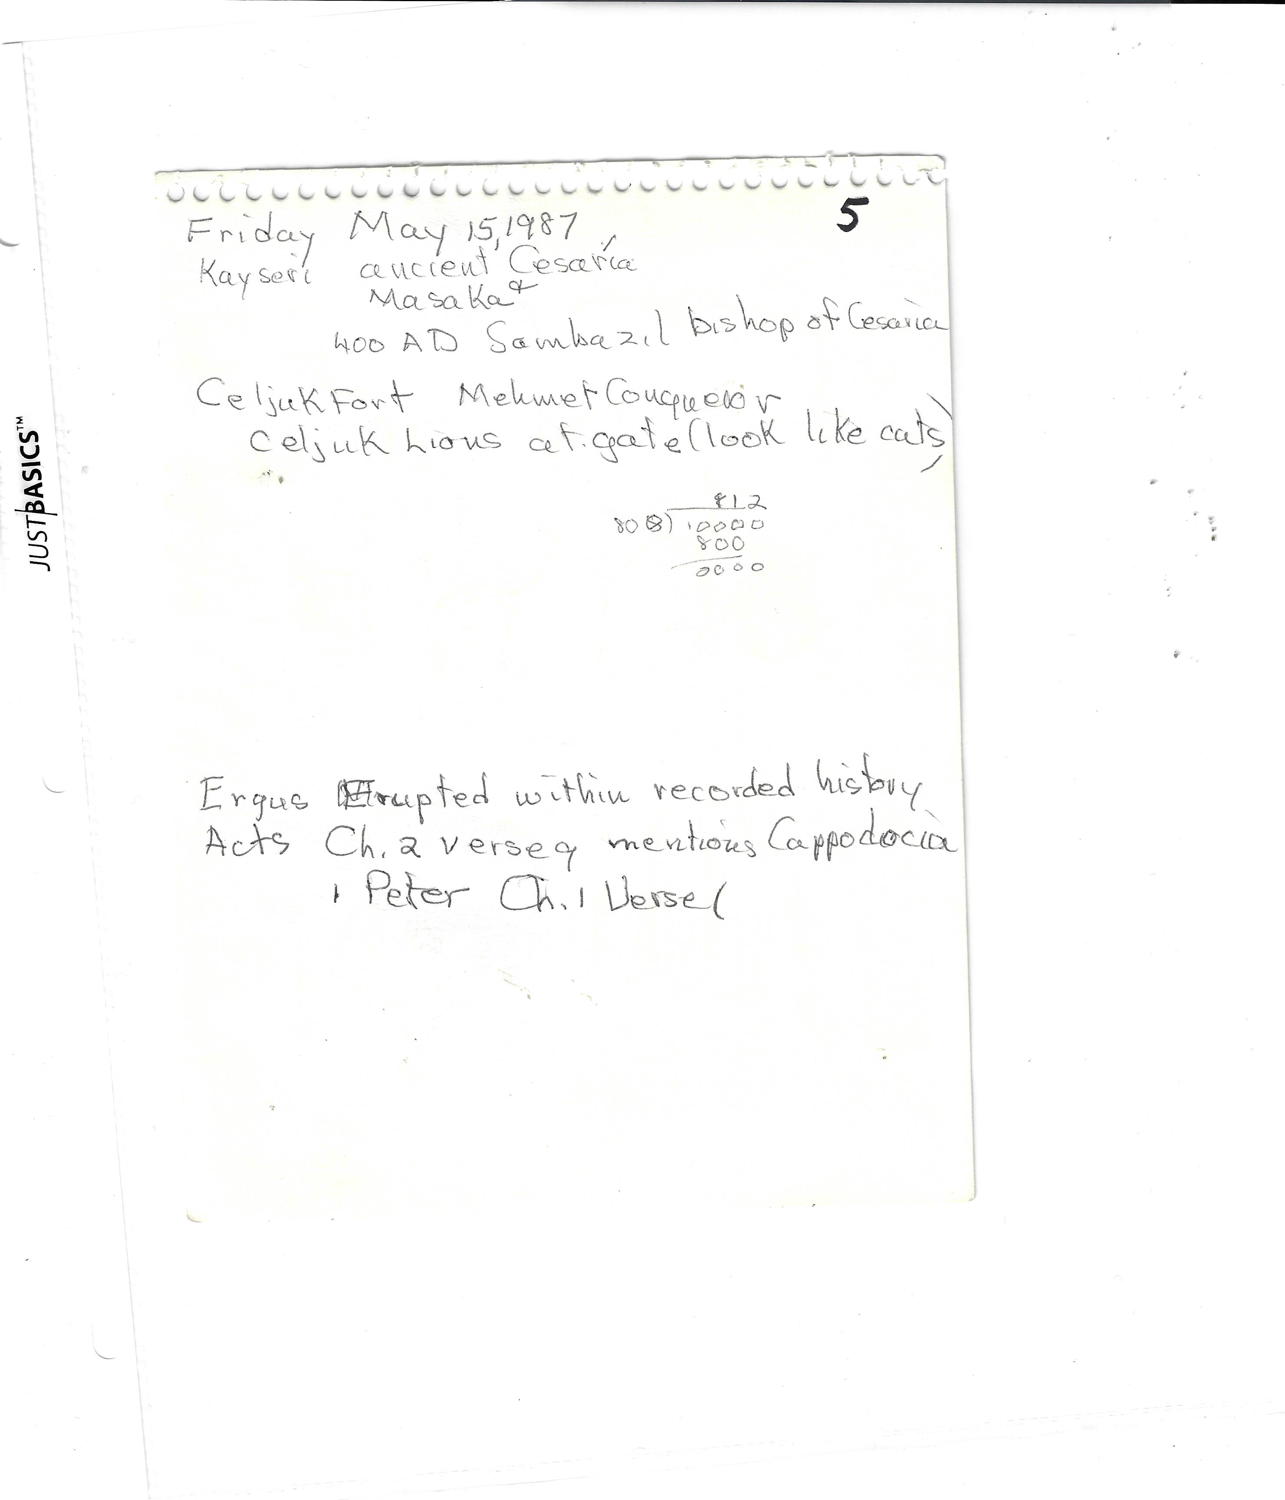 5
Friday May 15, 1987
Kayseri ancient Cesaria
Masaka &
400 AD Sambazil bishop of Cesaria
Celjuk Fort Mehmet Conqueror
Celjuk Lions at gate (look like cats)
812
808) 10000
800
0000
Ergus Erupted within recorded history
Acts Ch. 2 verse 9 mentions Cappodocia
1 Peter Ch. 1 Verse 1
JUST BASICS™